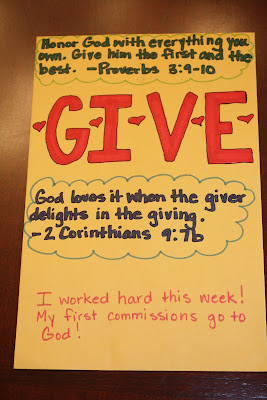 Honor God with everything you
own. Give him the first and the
best. -Proverbs 3:9-10
GIVE
God loves it when the giver
delights in the giving.
-2 Corinthians 9:7b
I worked hard this week!
My first commissions go to
God!